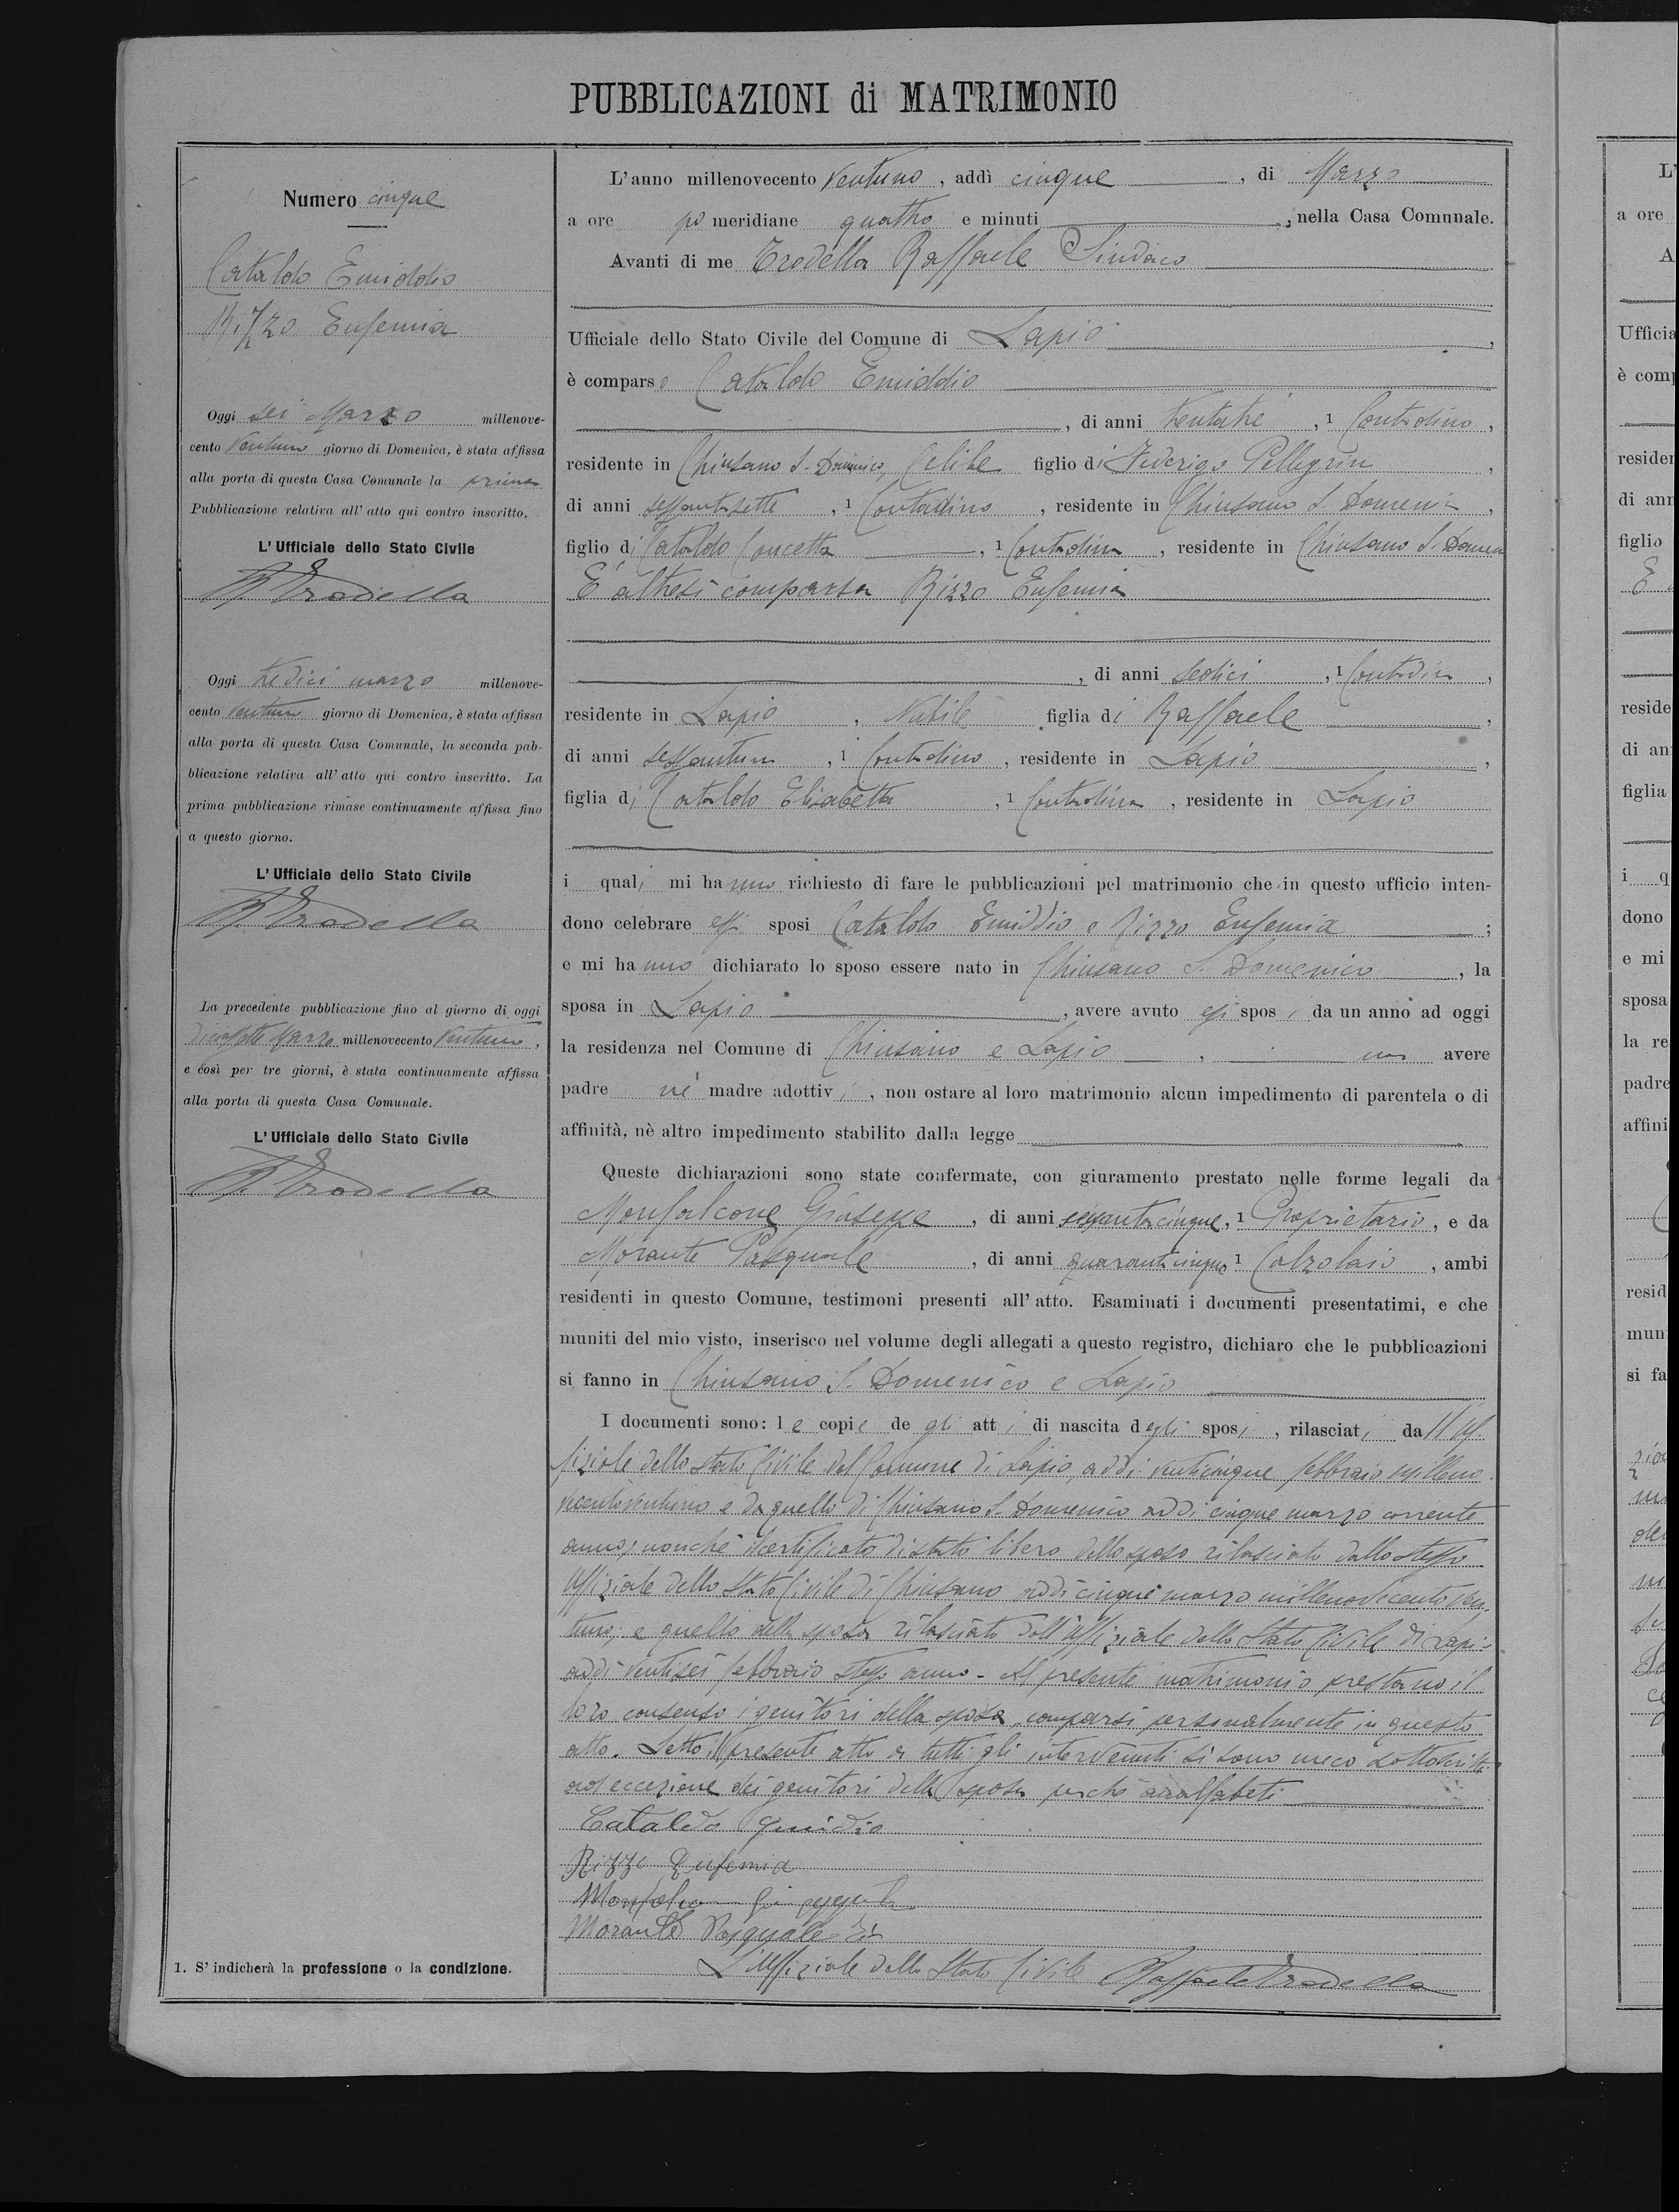 PUBBLICAZIONI di MATRIMONIO
Numero cinque
Cataldo Emiddio
Rizzo Eufemia
Oggi sei Marzo millenove-
cento Ventuno giorno di Domenica, è stata affissa
alla porta di questa Casa Comunale la prima
Pubblicazione relativa all' atto qui contro inscritto.
L' Ufficiale dello Stato Civile
R. Trodella
Oggi tredici marzo millenove-
cento Ventuno giorno di Domenica, è stata affissa
alla porta di questa Casa Comunale, la seconda pub-
blicazione relativa all' atto qui contro inscritto. La
prima pubblicazione rimase continuamente affissa fino
a questo giorno.
L' Ufficiale dello Stato Civile
R. Trodella
La precedente pubblicazione fino al giorno di oggi
Marzo millenovecento Ventuno,
e così per tre giorni, è stata continuamente affissa
alla porta di questa Casa Comunale.
L' Ufficiale dello Stato Civile
R. Trodella
1. S' indicherà la professione o la condizione.
L' anno millenovecento Ventuno, addì cinque, di Marzo
a ore po meridiane quattro e minuti, nella Casa Comunale.
Avanti di me Trodella Raffaele Sindaco
Ufficiale dello Stato Civile del Comune di Lapio,
è comparso Cataldo Emiddio
, di anni trentatre, 1 Contadino,
residente in Chiusano S. Domenico, Celibe figlio di Federigo Pellegrin,
di anni sessantasette, 1 Contadino, residente in Chiusano S. Domeni,
figlio di Cataldo Concetta, 1 Contadina, residente in Chiusano S. Domen
E' altresì comparsa Rizzo Eufemia
, di anni sedici, 1 Contadina,
residente in Lapio, Nubile figlia di Raffaele,
di anni sessantuno, 1 Contadino, residente in Lapio,
figlia di Cataldo Elisabetta, 1 Contadina, residente in Lapio
i quali mi hanno richiesto di fare le pubblicazioni pel matrimonio che in questo ufficio inten-
dono celebrare essi sposi Cataldo Emiddio e Rizzo Eufemia;
e mi hanno dichiarato lo sposo essere nato in Chiusano S. Domenico, la
sposa in Lapio, avere avuto essi sposi da un anno ad oggi
la residenza nel Comune di Chiusano e Lapio, non avere
padre nè madre adottivi, non ostare al loro matrimonio alcun impedimento di parentela o di
affinità, nè altro impedimento stabilito dalla legge
Queste dichiarazioni sono state confermate, con giuramento prestato nelle forme legali da
Monfalcone Giuseppe, di anni sessantacinque, 1 Proprietario, e da
Morante Pasquale, di anni quarantacinque 1 Calzolaio, ambi
residenti in questo Comune, testimoni presenti all' atto. Esaminati i documenti presentatimi, e che
muniti del mio visto, inserisco nel volume degli allegati a questo registro, dichiaro che le pubblicazioni
si fanno in Chiusano S. Domenico e Lapio
I documenti sono: le copie degli atti di nascita degli sposi, rilasciati dall'Uf-
fiziale dello Stato Civile del Comune di Lapio addì venticinque febbraio milleno-
vecentoventuno e da quello di Chiusano S. Domenico addì cinque marzo corrente
anno; nonchè il certificato di stato libero dello sposo rilasciato dallo stesso
Uffiziale dello Stato Civile di Chiusano addì cinque marzo millenovecentoven-
tuno; e quello della sposa rilasciato dall'Uffiziale dello Stato Civile di Lapi-
addì ventisei febbraio stesso anno - Al presente matrimonio prestano il
loro consenso i genitori della sposa comparsi personalmente in questo
atto. Letto il presente atto a tutti gli intervenuti si sono meco sottoscritti
ad eccezione dei genitori della sposa perchè analfabeti
Cataldo Emidio
Rizzo Eufemia
Morante Pasquale
L'Uffiziale dello Stato Civile Raffaele Trodella